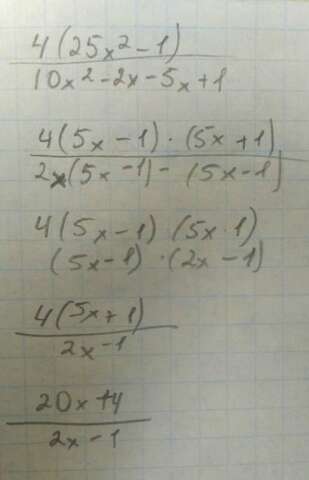 4(25x²-1)
10x²-2x-5x+1
4(5x-1)·(5x+1)
2x(5x-1)-(5x-1)
4(5x-1)(5x 1)
(5x-1)·(2x-1)
4(5x+1)
2x-1
20x+4
2x-1